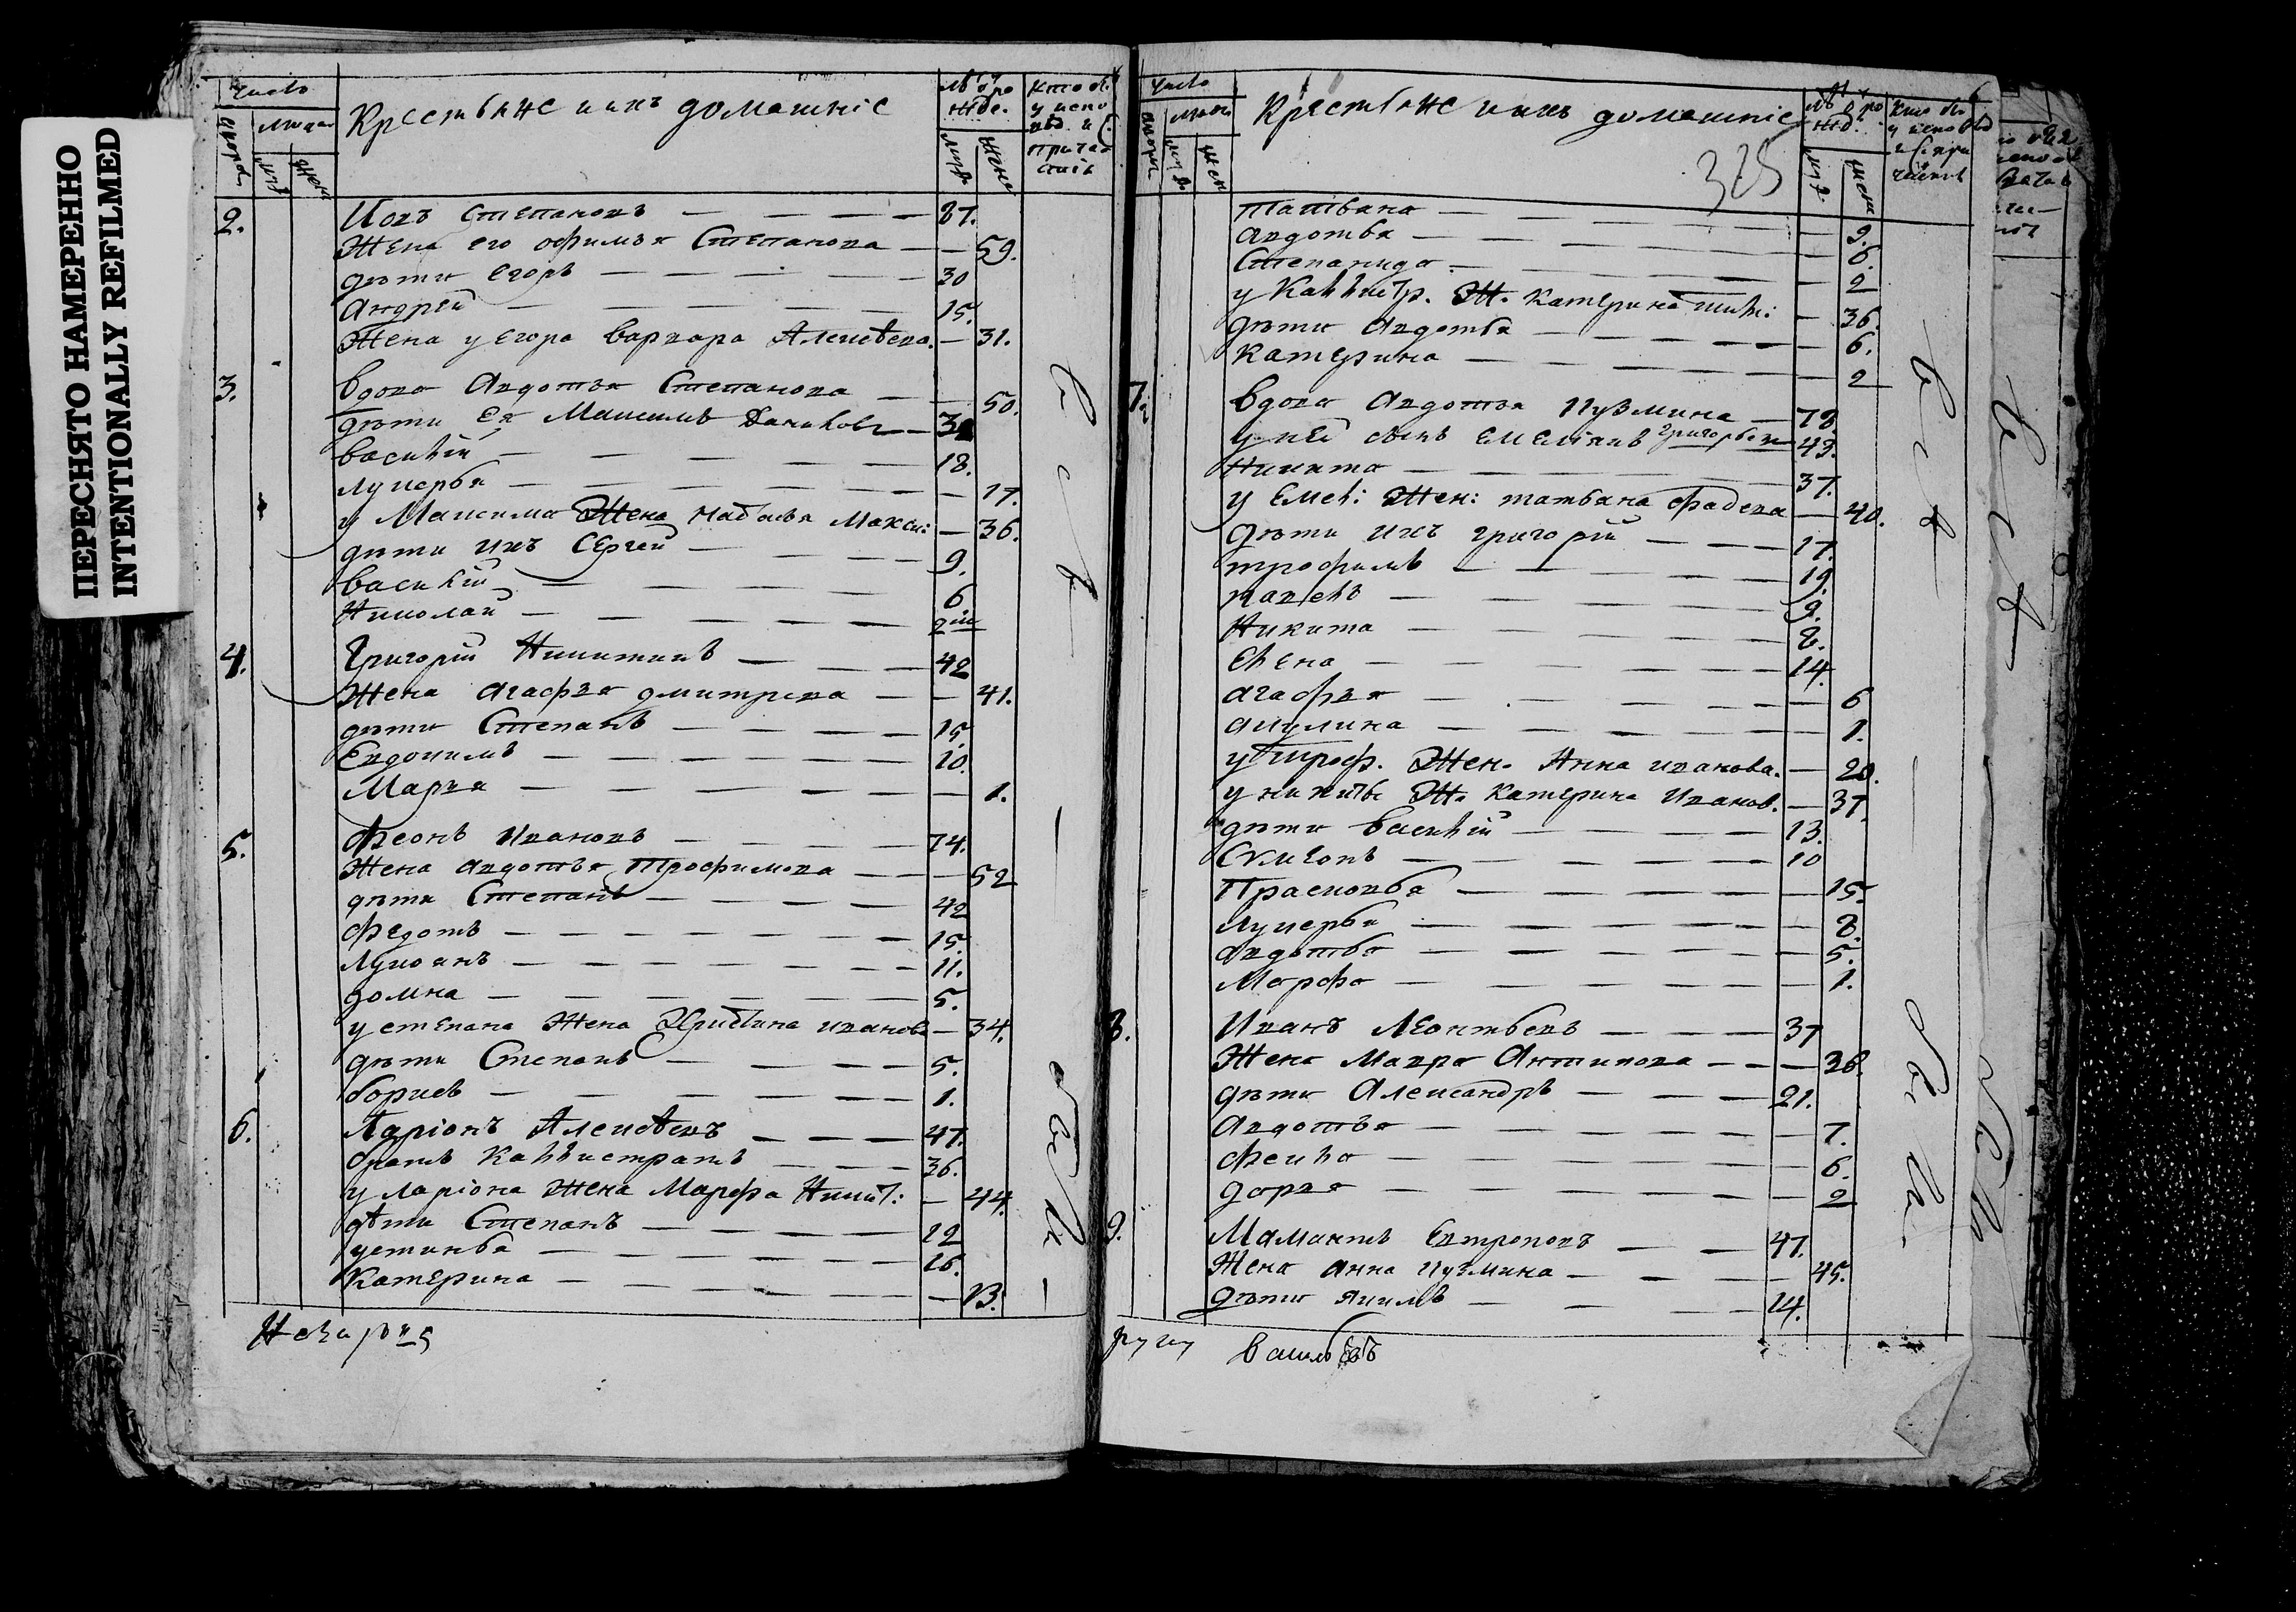 ПЕРЕСНЯТО НАМЕРЕННО
INTENTIONALLY REFILMED
Число
Крестьяне и ихъ домашніе
2.
Иовъ Степановъ 87.
Жена его офимья Степанова 59.
дѣти Егоръ 30
Андрей 15.
Жена у Егора варвара Алексѣева. 31.
3.
вдова Авдотья Степанова 50.
дѣти Ея Максимъ
василій 18.
лукерья 17.
у Максима Жена наталья Макси: 36.
дѣти ихъ Сергей 9.
василій 6
Николай
4.
Григорій Никитинъ 42
Жена агафья дмитрева 41.
дѣти Степанъ 15.
Евдокимъ 10.
Марья 1.
5.
Феонъ Ивановъ 74.
Жена авдотья Трофимова 52
дѣти Степанъ 42
Федотъ 15.
Лукоянъ 11.
домна 5.
у степана Жена Христина иванов 34.
дѣти Степанъ 5.
борисъ 1.
6.
Ларіонъ Алексѣевъ 47.
братъ Каллистратъ 36.
у ларіона Жена Марфа Никит: 44.
дѣти Степанъ 12
устинья 16.
Катерина 13.
Число
Крестьяне и ихъ домашніе
325
татьяна 9.
авдотья 6.
Степанида 2
у Каллистр. Ж. Катерина 36.
дѣти авдотья 6.
Катерина 2
7.
вдова авдотья Кузмина 78.
у ней сынъ Емеліянъ григорьев 43.
Никита 37.
у Емел: Жен: татьяна фадева 40.
дѣти ихъ григорій 17.
трофимъ 19.
павелъ 9.
Никита 8.
Елена 14.
агафья 6
акулина 1.
у троф. Жен. Анна иванова. 20.
у никиты Ж. Катерина Иванов. 37.
дѣти василій 13.
Симеонъ 10
Прасковья 15.
лукерья 8.
авдотья 5.
Марфа 1.
8.
Иванъ Леонтьевъ 37
Жена Мавра Антипова 38.
дѣти Александръ 21.
авдотья 7.
Фекла 6.
дарья 2
9.
Мамантъ Евтроповъ 47.
Жена анна кузмина 45.
дѣти якимъ 14.
руку